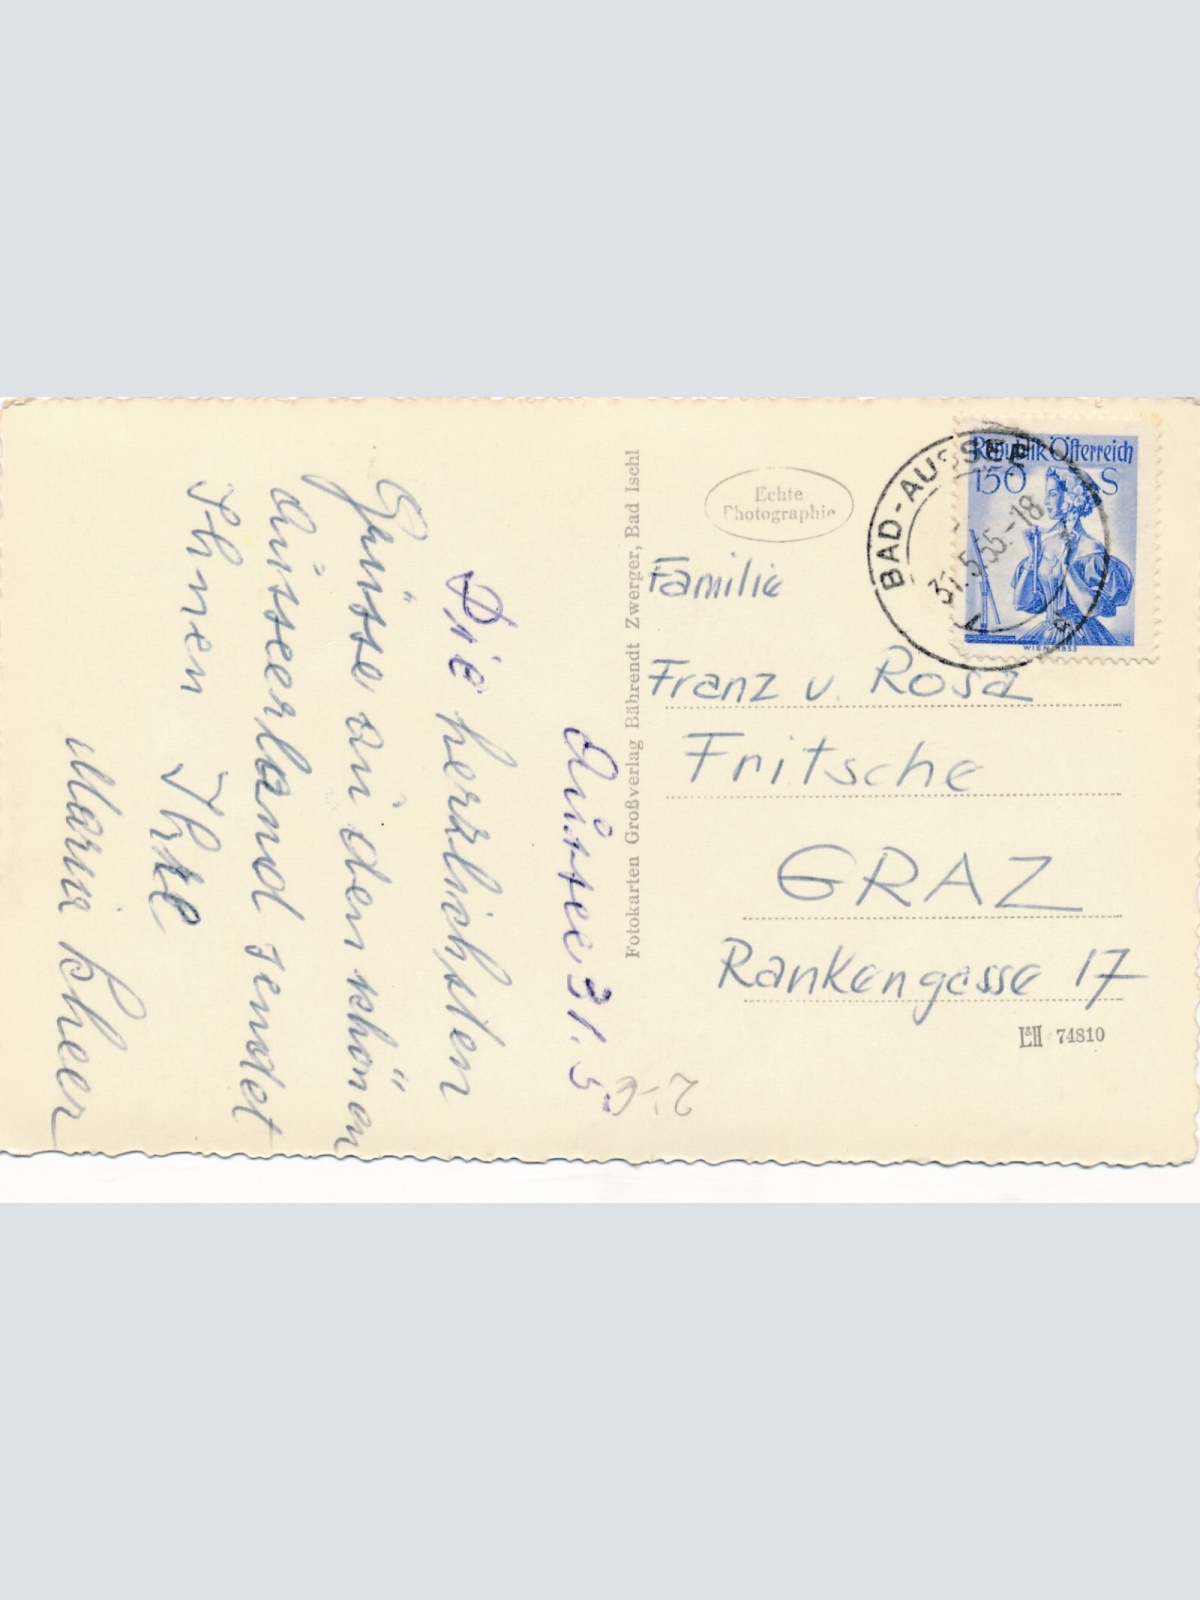 Aussee 31.5
Die herzlichsten
Grüsse aus dem schönen
Ausseerland sendet
Ihnen Ihre
Maria
Fotokarten Großverlag Bährendt Zwerger, Bad Ischl
Echte
Photographie
Republik Österreich
150 S
WIEN 1853
BAD-AUSSEE
31.5.55.-18
Familie
Franz u. Rosa
Fritsche
GRAZ
Rankengasse 17
L&H 74810